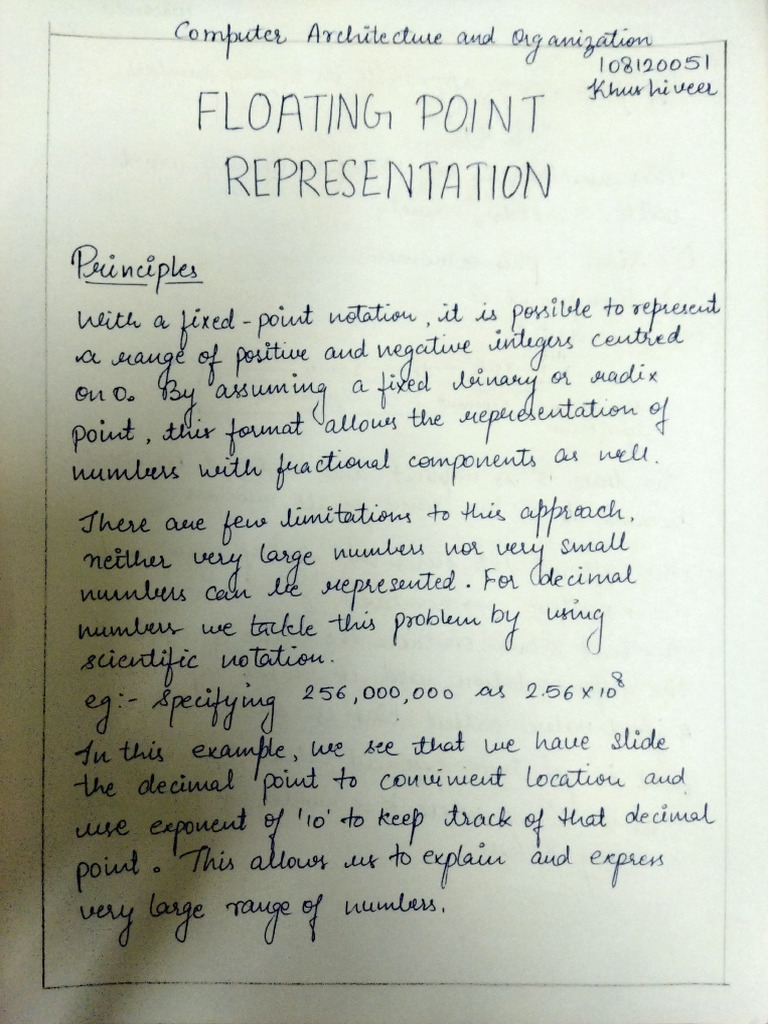 Computer Architecture and Organization
108120051
Khushiveer
FLOATING POINT
REPRESENTATION
Principles
With a fixed-point notation, it is possible to represent
a range of positive and negative integers centred
on 0. By assuming a fixed binary or radix
point, this format allows the representation of
numbers with fractional components as well.
There are few limitations to this approach,
neither very large numbers nor very small
numbers can be represented. For decimal
numbers we tackle this problem by using
scientific notation.
eg:- Specifying 256,000,000 as 2.56 x 10⁸
In this example, we see that we have slide
the decimal point to convinient location and
use exponent of '10' to keep track of that decimal
point. This allows us to explain and express
very large range of numbers.